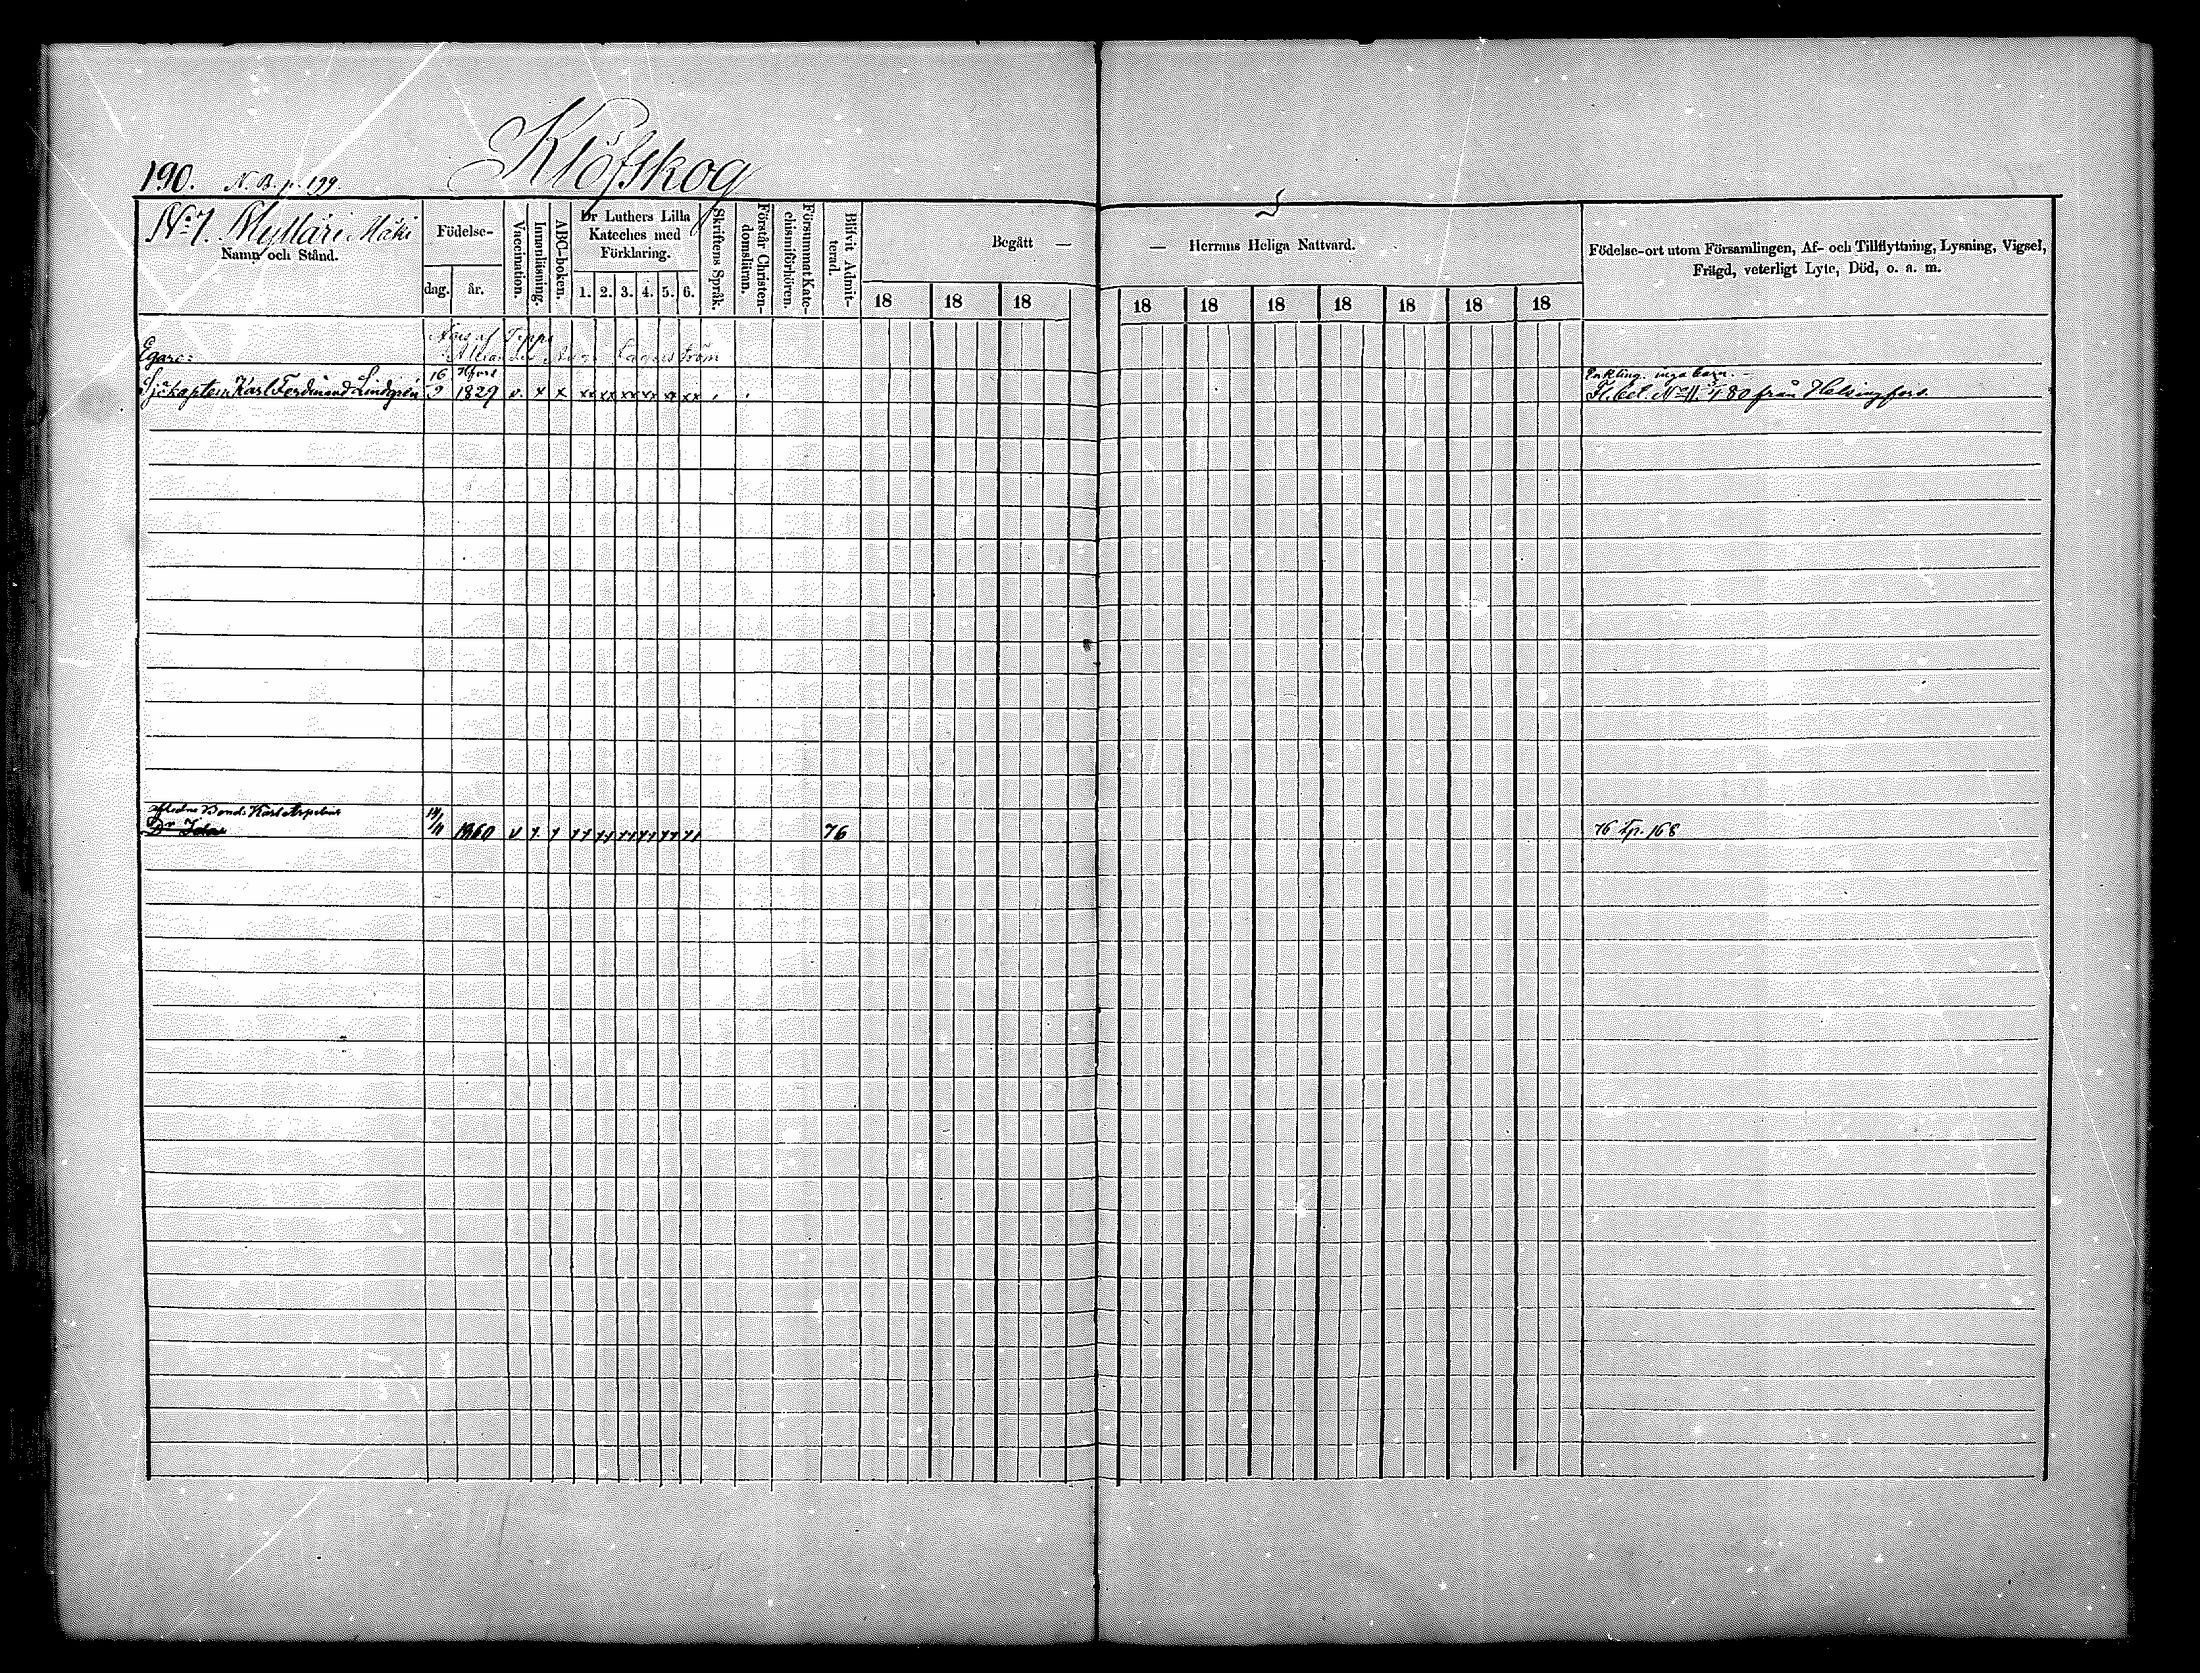 190. N. B. p. 199.
Klöfskog
No 7. Mylläri Mäki
Namn och Stånd.
Födelse-
dag. år.
Vaccination.
Innanläsning.
ABC-boken.
Dr Luthers Lilla
Kateches med
Förklaring.
1. 2. 3. 4. 5. 6.
Skriftens Språk.
Förstår Christen-
domsläran.
Försummat Kate-
chismiförhören.
Blifvit Admit-
terad.
Begått —
18 18 18
— Herrans Heliga Nattvard.
18 18 18 18 18 18 18
Födelse-ort utom Församlingen, Af- och Tillflyttning, Lysning, Vigsel,
Frägd, veterligt Lyte, Död, o. a. m.
af
Egare: Lagerström
16 Hfors Enkling. inga barn. —
Sjökapten Karl Ferdinand Lindgrén 9 1829 v. x x xx xx xx xx xx xx Fl. bet. No 11 80 från Helsingfors.
Bond. Karl
Dr Ida 1860 v 76 76 Tp. 168